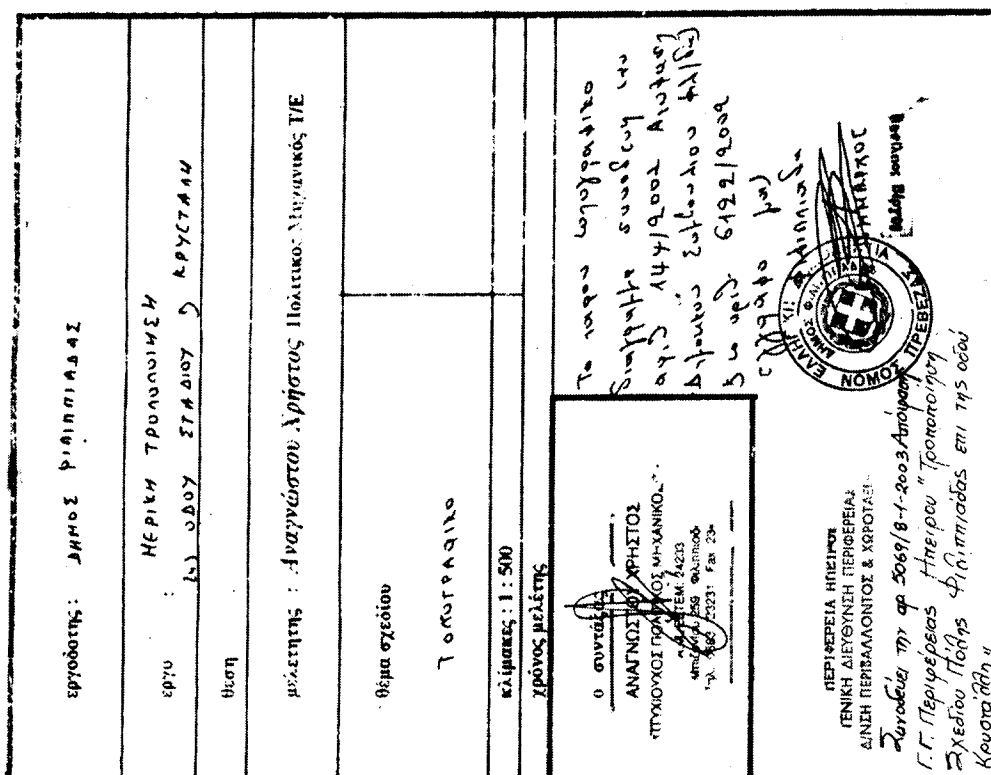 εργοδοτης : ΔΗΜΟΣ ΦΙΛΙΠΠΙΑΔΑΣ
εργο : ΜΕΡΙΚΗ ΤΡΟΠΟΠΟΙΗΣΗ
ΟΔΟΥ ΣΤΑΔΙΟΥ ΚΡΥΣΤΑΛΗ
θεση
μελετητης : Αναγνώστου Χρήστος Πολιτικος Μηχανικός Τ/Ε
θέμα σχεδίου
ΤΟΠΟΓΡΑΦΙΚΟ
κλίμακες : 1 : 500
χρόνος μελέτης
ο συντάξας
ΑΝΑΓΝΩΣΤΟΥ ΧΡΗΣΤΟΣ
ΠΤΥΧΙΟΥΧΟΣ ΠΟΛΙΤΙΚΟΣ ΜΗΧΑΝΙΚΟΣ
24233
259
23231 Fax 23
Το παρον τοπογραφικο
διαγραμμα συνοδευη την
αριθ 144/2002 Αποφαση
Δημοτικου Συμβουλιου
6122/2002
εγγραφο μας
Φιλιππιαδα
Ο ΔΗΜΑΡΧΟΣ
ΕΛΛΗΝΙΚΗ ΔΗΜΟΚΡΑΤΙΑ
ΔΗΜΟΣ ΦΙΛΙΠΠΙΑΔΑΣ
ΝΟΜΟΣ ΠΡΕΒΕΖΑΣ
ΠΕΡΙΦΕΡΕΙΑ ΗΠΕΙΡΟΥ
ΓΕΝΙΚΗ ΔΙΕΥΘΥΝΣΗ ΠΕΡΙΦΕΡΕΙΑΣ
Δ/ΝΣΗ ΠΕΡΙΒΑΛΛΟΝΤΟΣ & ΧΩΡΟΤΑΞΙ
Συνοδεύει την αρ 5069/8-1-2003 Απόφαση
Γ.Γ. Περιφέρειας Ηπείρου "Τροποποίηση
Σχεδίου Πόλης Φιλιππιάδας επι της οδού
Κρυστάλλη"